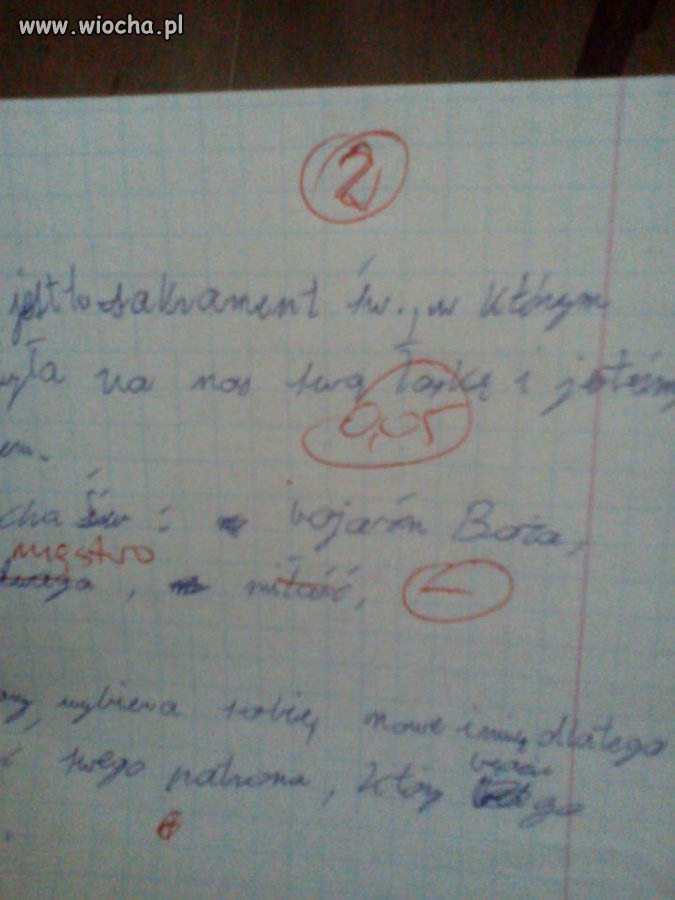 www.wiocha.pl
2
jest to sakrament św., w którym
na nas swą łaskę i jesteśmy
0,05
cha św: bojaźń Boża,
męstwo
miłość, –
wybiera sobie nowe imię dlatego
swego patrona, który będzie go